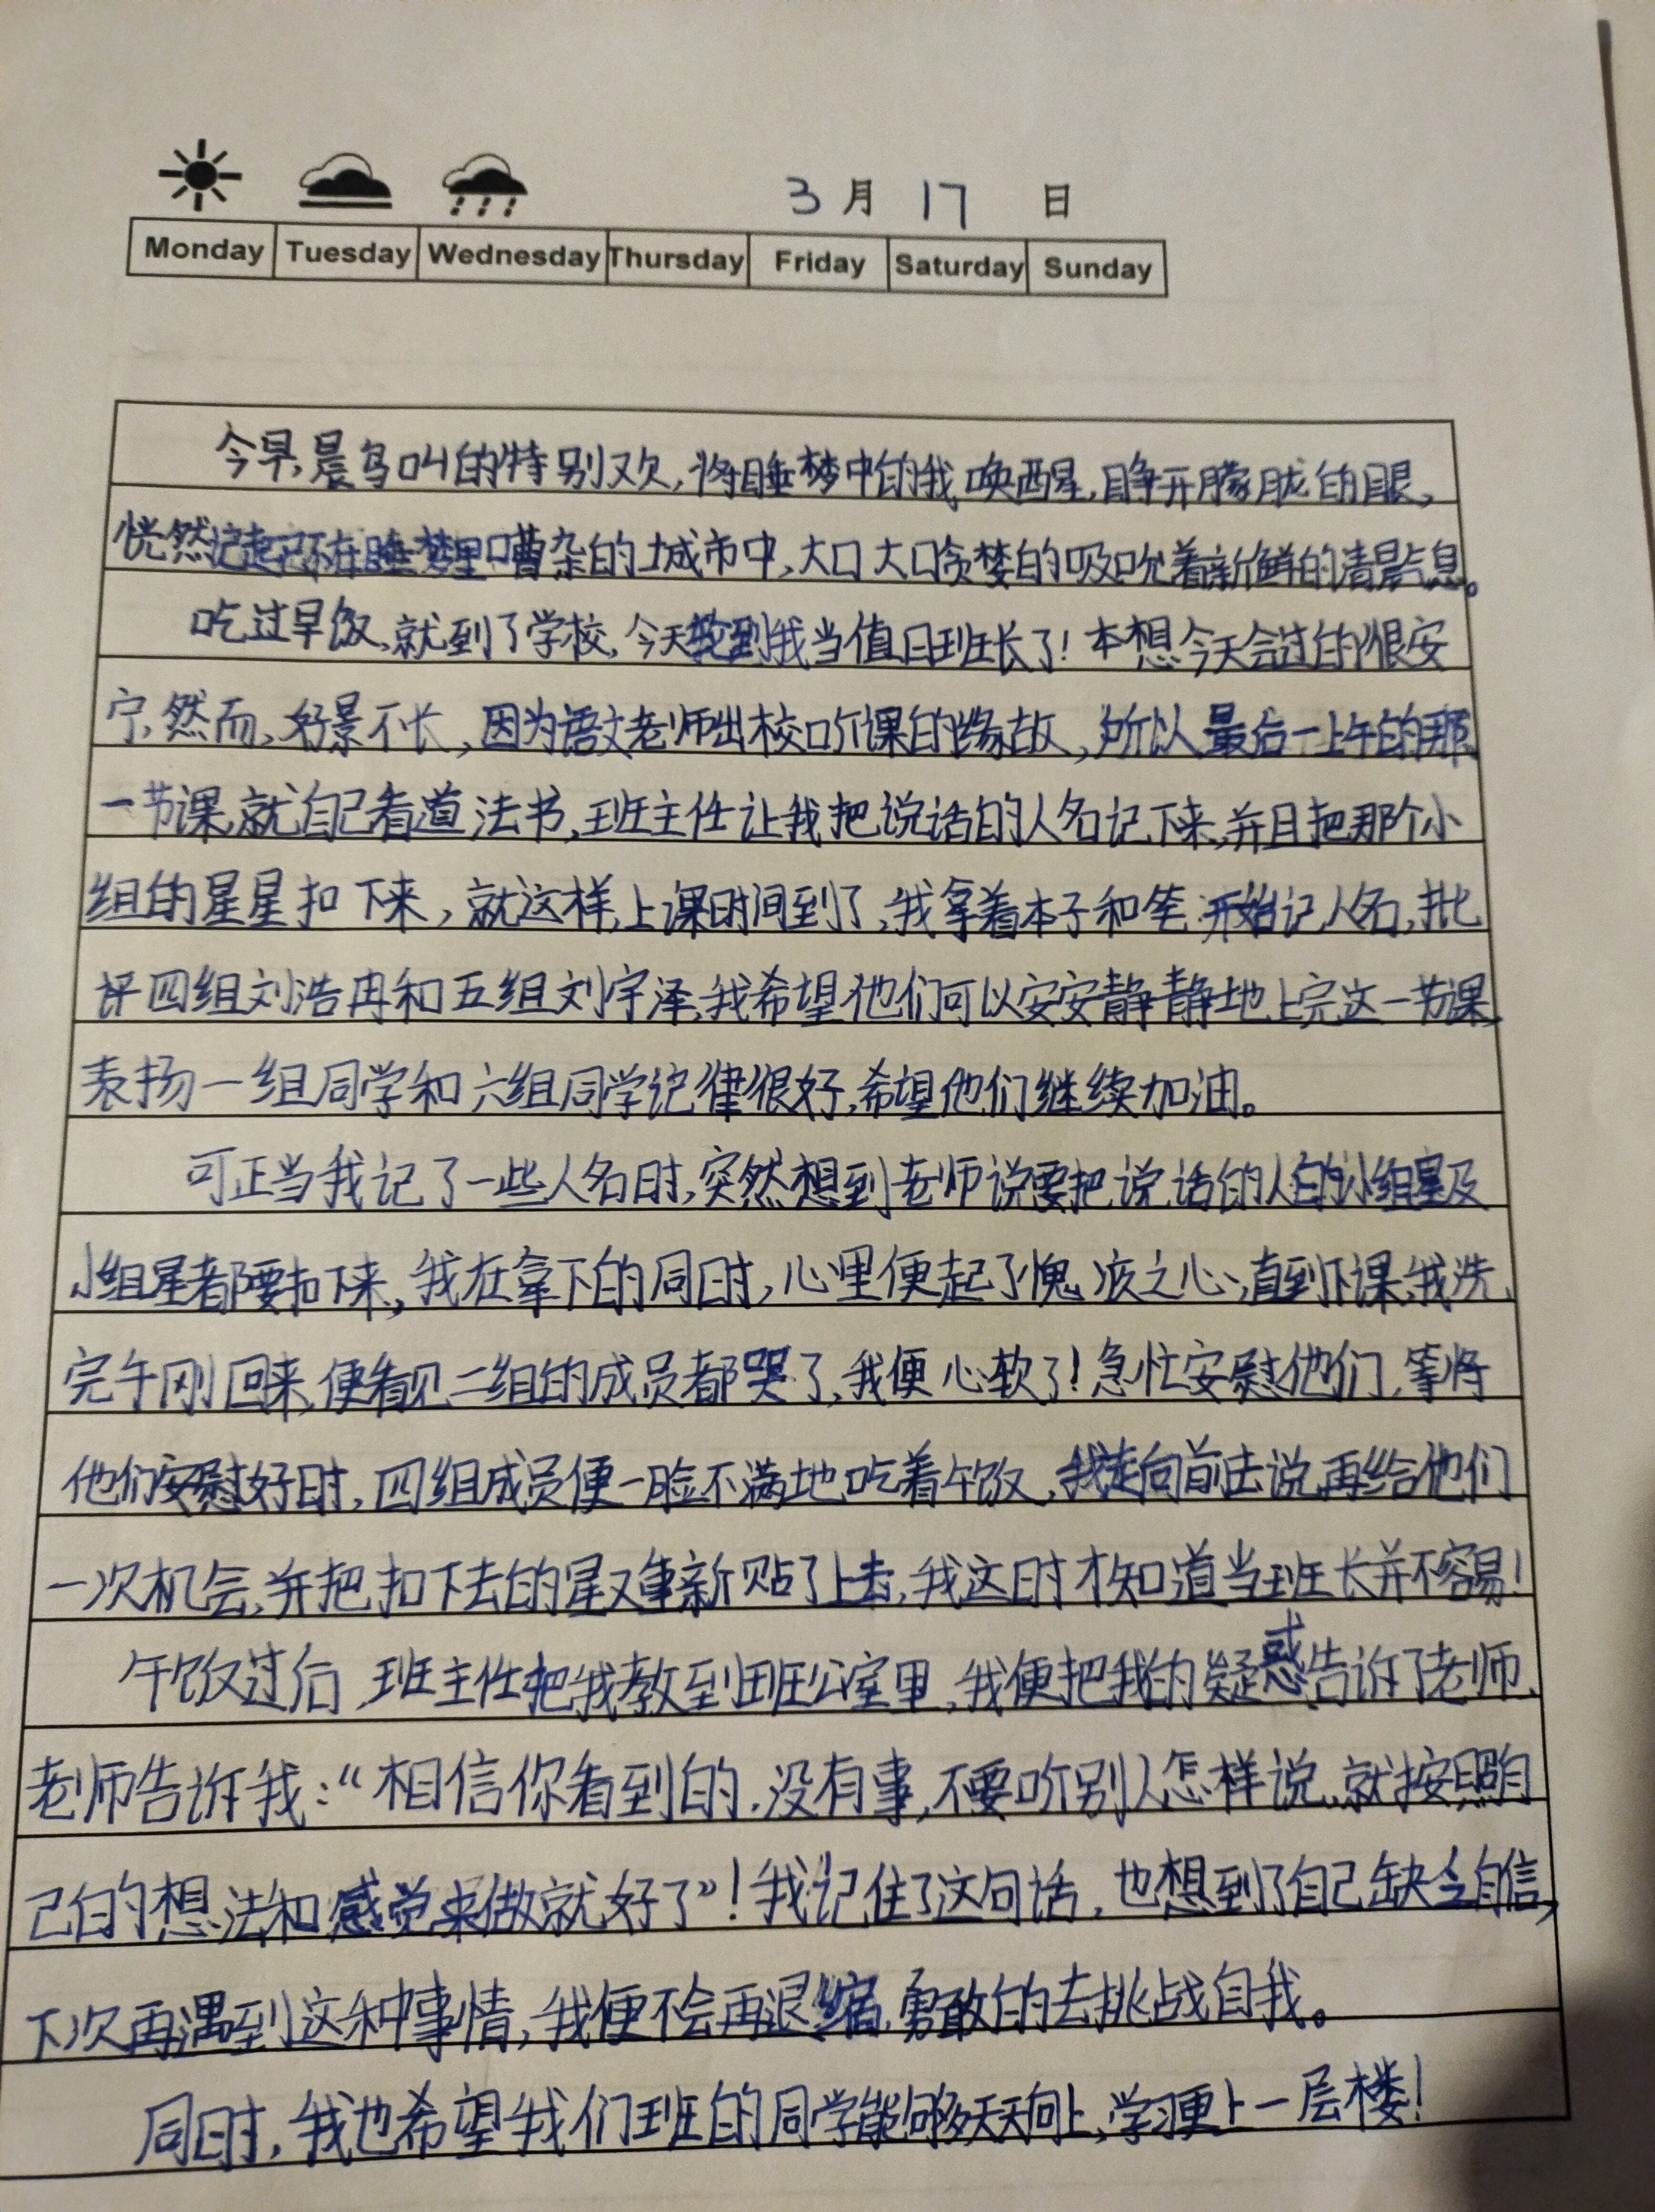 3月17日
Monday Tuesday Wednesday Thursday Friday Saturday Sunday
今早,晨鸟叫的特别欢,将睡梦中的我唤醒,睁开朦胧的眼,
恍然记起已不在睡梦里嘈杂的城市中,大口大口贪婪的吸吮着新鲜的清晨气息。
吃过早饭,就到了学校,今天轮到我当值日班长了!本想今天会过的很安
宁,然而,好景不长,因为语文老师出校听课的缘故,所以最后一上午的那
一节课,就自己看道法书,班主任让我把说话的人名记下来,并且把那个小
组的星星扣下来,就这样,上课时间到了,我拿着本子和笔开始记人名,批
评四组刘浩冉和五组刘宇泽,我希望他们可以安安静静地上完这一节课,
表扬一组同学和六组同学记律很好,希望他们继续加油。
可正当我记了一些人名时,突然想到老师说要把说话的人的小组星及
小组星都要扣下来,我在拿下的同时,心里便起了愧疚之心,直到下课,我洗
完午刚回来,便看见二组的成员都哭了,我便心软了!急忙安慰他们,等将
他们安慰好时,四组成员便一脸不满地吃着午饭,我走向前去说再给他们
一次机会,并把扣下去的星又重新贴了上去,我这时才知道当班长并不容易!
午饭过后,班主任把我教到班公室里,我便把我的疑惑告诉了老师,
老师告诉我:“相信你看到的,没有事,不要听别人怎样说,就按照自
己的想法和感觉来做就好了”!我记住了这句话,也想到了自己缺乏自信,
下次再遇到这种事情,我便不会再退缩,勇敢的去挑战自我。
同时,我也希望我们班的同学能够天天向上,学习更上一层楼!